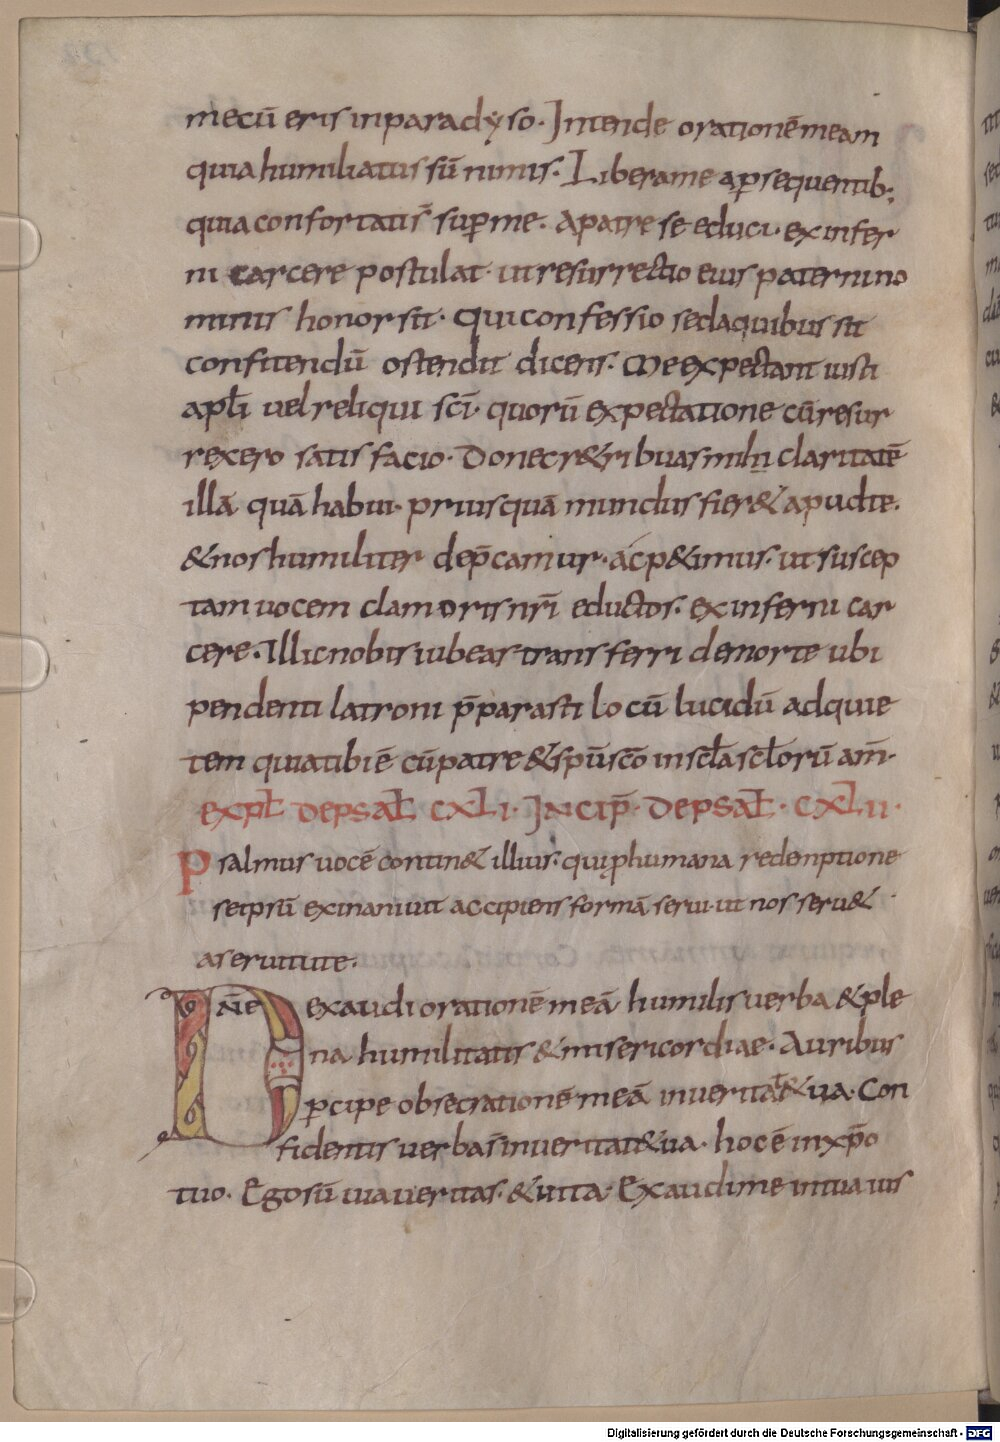 mecū eris in paradẏso. Intende orationē meam
quia humiliatus sū nimis. Libera me a ꝑsequentib;
quia confortati s̄ suꝑ me. A patre se educi. ex infer
ni carcere postulat. ut resurrectio eius paterni no
minis honor sit. Qui confessio sed a quibus sit
confitendū ostendit dicens. Me expectant iusti
apłi uel reliqui scī. quorū expectatione cū resur
rexero satisfacio. Donec r&ribuas mihi claritatē
illā quā habui. priusquā mundus fier& apud te.
& nos humiliter dep̄camur. ac p&imus. ut suscep
tam uocem clamoris nr̄i eductos. ex inferni car
cere. Illic nobis iubeas transferri de morte ubi
pendenti latroni p̄parasti locū lucidū ad quie
tem quia tibi ē cū patre & sp̄u sc̄o in scła scłorū am̄.
EXPŁ DE PSAŁ CXLI. INCIP̄ DE PSAŁ. CXLII.
Psalmus uocē contin& illius. qui ꝓ humana redemptione
seipsū exinaniuit accipiens formā serui. ut nos seru&
a seruitute.
DN̄E exaudi orationē meā humilis uerba & ple
na humilitatis & misericordiae. Auribus
ꝑcipe obsecrationē meā in ueritat& ua. Con
fidentis uerba s̄ in ueritat& ua. hoc ē in xp̄o
tuo. Ego sū uia ueritas. & uita. Exaudi me in tua ius
Digitalisierung gefördert durch die Deutsche Forschungsgemeinschaft - DFG